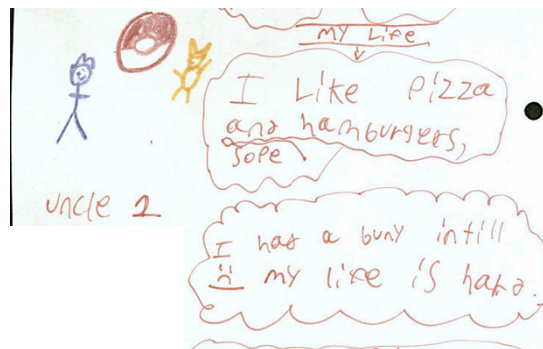 my Life
I Like Pizza
and hamburgers,
Sope
uncle 1
I had a buny intill
my life is hard.